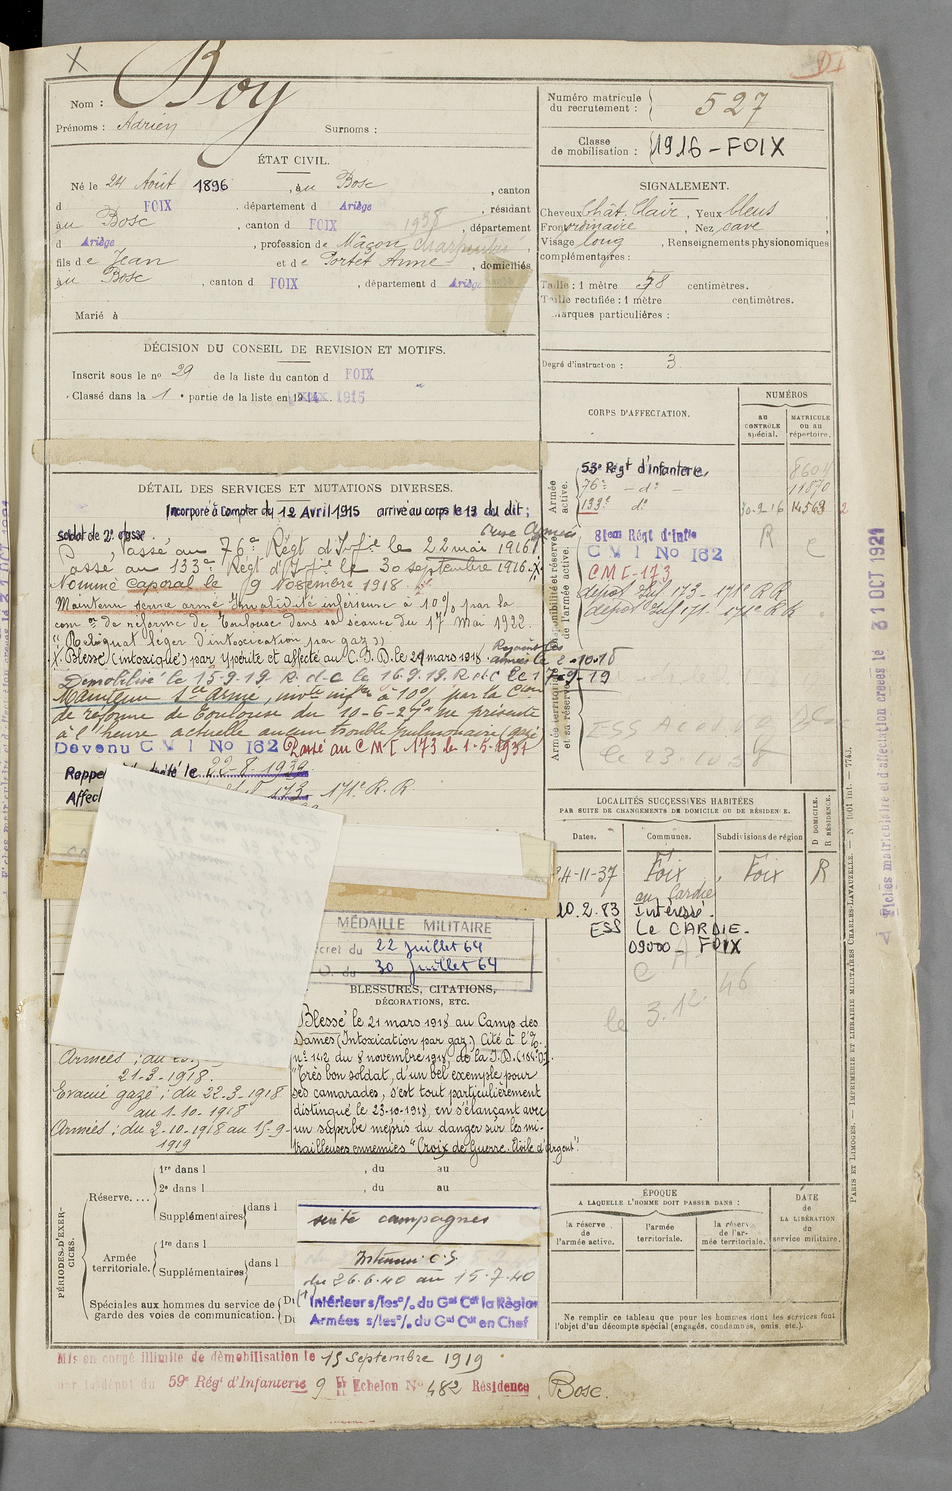 X
Nom : Boy
Prénoms : Adrien Surnoms :
ÉTAT CIVIL.
Né le 24 Août 1896, au Bosc, canton
d FOIX, département d Ariège, résidant
au Bosc, canton d FOIX 1938, département
d Ariège, profession de Maçon Charpentier,
fils de Jean et de Portet Anne, domiciliés
au Bosc, canton d FOIX, département d Ariège
Marié à
DÉCISION DU CONSEIL DE REVISION ET MOTIFS.
Inscrit sous le no 29 de la liste du canton d FOIX
Classé dans la 1 e partie de la liste en 1915
DÉTAIL DES SERVICES ET MUTATIONS DIVERSES.
Incorporé à compter du 12 Avril 1915 arrivé au corps le 13 du dit;
soldat de 2e classe
Passé au 76e Régt d'Infie le 22 mai 1916
Passé au 133e Régt d'Ifie le 30 septembre 1916. X
Nommé caporal le 9 Novembre 1918.
Maintenu service armé Invalidité inférieure à 10% par la
com on de réforme de Toulouse dans sa séance du 17 mai 1922.
"Reliquat léger d'intoxication par gaz"
X. Blessé (intoxiqué) par ypérite et affecté au C.I.D. le 29 mars 1918. Rejoint les
armées le 2-10-18
Démobilisé le 15-9-19 R.d.c le 16.9.19. R.d.c le 17-9-19
Maintenu Sce Armé, invté infre à 10% par la Cion
de réforme de Toulouse du 10-6-27 "ne présente
à l'heure actuelle aucun trouble pulmonaire (gazé
Devenu C V I No 162 Passé au CMI-173 le 1-5-1931
Rappelé à l'activité le 22-8-1939
Affecté 173 171e R.R
MÉDAILLE MILITAIRE
Décret du 22 Juillet 64
J.O. du 30 Juillet 64
BLESSURES, CITATIONS,
DÉCORATIONS, ETC.
Blessé le 21 mars 1918 au Camp des
Dames (Intoxication par gaz) Cité à l'O.
no 142 du 8 novembre 1918, de la I.D.
"Très bon soldat, d'un bel exemple pour
ses camarades, s'est tout particulièrement
distingué le 23-10-1918, en s'élançant avec
un superbe mépris du danger sur les mi-
trailleuses ennemies" Croix de Guerre. Etoile d'argent.
Armées ; au
21-3-1918.
Evacué gazé ; du 22-3-1918
au 1-10-1918
Armées ; du 2-10-1918 au 15-9-
1919
PÉRIODES D'EXER-
CICES.
Réserve....
1re dans l , du au
2e dans l , du au
Supplémentaires dans l
Armée
territoriale.
1re dans l
Supplémentaires dans l
Spéciales aux hommes du service de
garde des voies de communication.
Du
Du
suite campagnes
Intérieur C.S.
du 26.6.40 au 15.7.40
Intérieur s/les o/. du Gal Cdt la Région
Armées s/les o/. du Gal Cdt en Chef
Mis en congé illimité de démobilisation le 15 Septembre 1919
par le dépôt du 59e Régt d'Infanterie 9 Echelon No 482 Résidence Bosc.
Numéro matricule
du recrutement : 527
Classe
de mobilisation : 1916 - FOIX
SIGNALEMENT.
Cheveux Chât. Clair, Yeux bleus
Front ordinaire, Nez cave,
Visage long, Renseignements physionomiques
complémentaires :
Taille : 1 mètre 58 centimètres.
Taille rectifiée : 1 mètre centimètres.
Marques particulières :
Degré d'instruction : 3
CORPS D'AFFECTATION.
NUMÉROS
AU
CONTRÔLE
spécial.
MATRICULE
ou au
répertoire.
Armée
active.
53e Régt d'infanterie, 8604
76e - do - 11870
133e do 30-9-16 14563
Disponibilité et réserve
de l'armée active.
81em Régt d'Infie R
C V I No 162
CMI-173
depot Inf 173 - 171e R R
depot Inf 171 - 171e R R
Armée territoriale
et sa réserve
le 23.10.58
LOCALITÉS SUCCESSIVES HABITÉES
PAR SUITE DE CHANGEMENTS DE DOMICILE OU DE RÉSIDENCE.
Dates. Communes. Subdivisions de région
D DOMICILE.
R RÉSIDENCE.
24-11-37 Foix, Foix R
au Cardié
10.2.83 Intéressé.
ESS Le CARDIE-
09000 - FOIX
le 3.12.46
ÉPOQUE
A LAQUELLE L'HOMME DOIT PASSER DANS :
la réserve
de
l'armée active.
l'armée
territoriale.
la réserve
de l'ar-
mée territoriale.
DATE
de
LA LIBÉRATION
du
service militaire.
Ne remplir ce tableau que pour les hommes dont les services font
l'objet d'un décompte spécial (engagés, condamnés, omis, etc.).
PARIS ET LIMOGES. — IMPRIMERIE ET LIBRAIRIE MILITAIRES CHARLES-LAVAUZELLE. — N° 1001 int. — 7743.
Fiches matriculaire et d'affectation créées le 31 OCT 1921